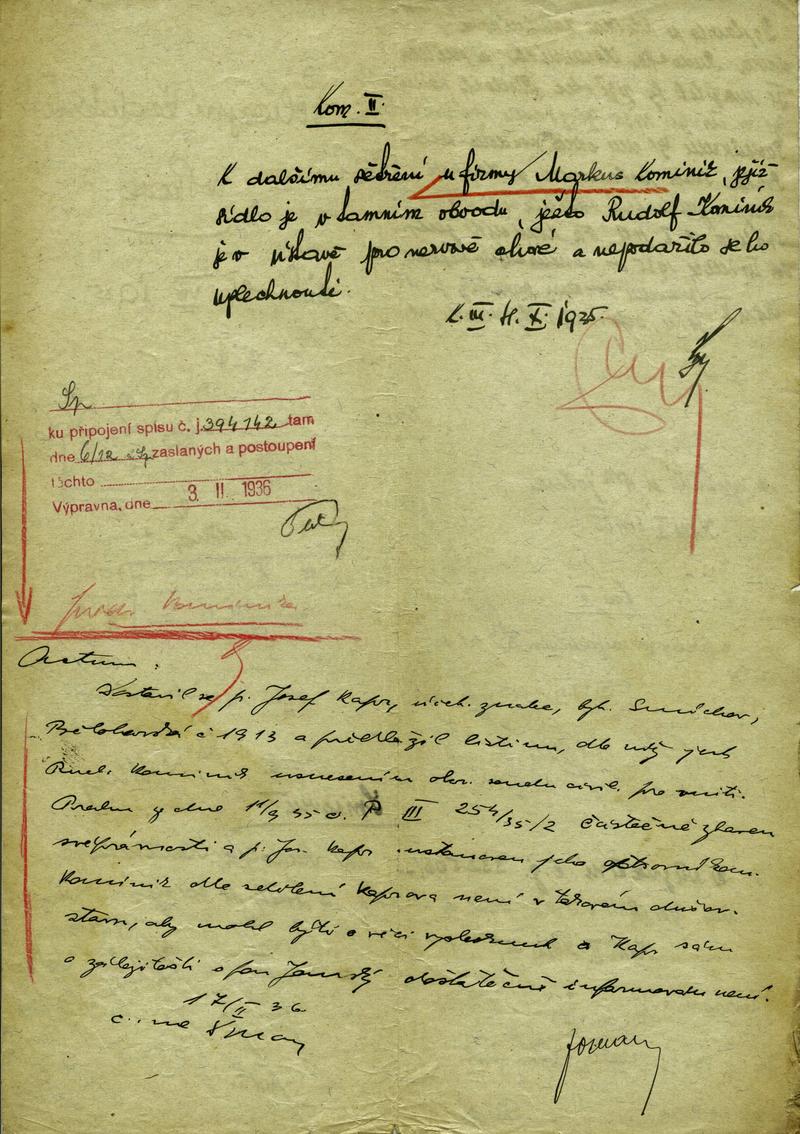 Kom. II.
K dalšímu šetření u firmy Markus Kominik, jejíž
sídlo je v tamním obvodu, ješto Rudolf Kominik
je v ústavě pro nervově choré a nepodařilo se ho
vyslechnouti.
K. III. X. 1935.
Sp
ku připojení spisu č. j. 394142 tam
dne 6/12 zaslaných a postoupení
těchto
Výpravna, dne 3. II. 1936
Kominika
Actum:
Dostavil se p. Josef Kapr, úřed. byt. Smíchov,
č 1913 a předložil listinu, dle níž jest
Rud. Kominik usnesením okr. soudu civil. pro vnitř.
Prahu ze dne 11/9 35 P III 254/35/2 částečně zbaven
svéprávnosti a p. Jos. Kapr ustanoven jeho opatrovníkem.
Kominik dle sdělení Kaprova není v takovém dušev.
stavu, aby mohl býti o věci vyslechnut a Kapr sám
o záležitosti dostatečně informován není.
17/II 36